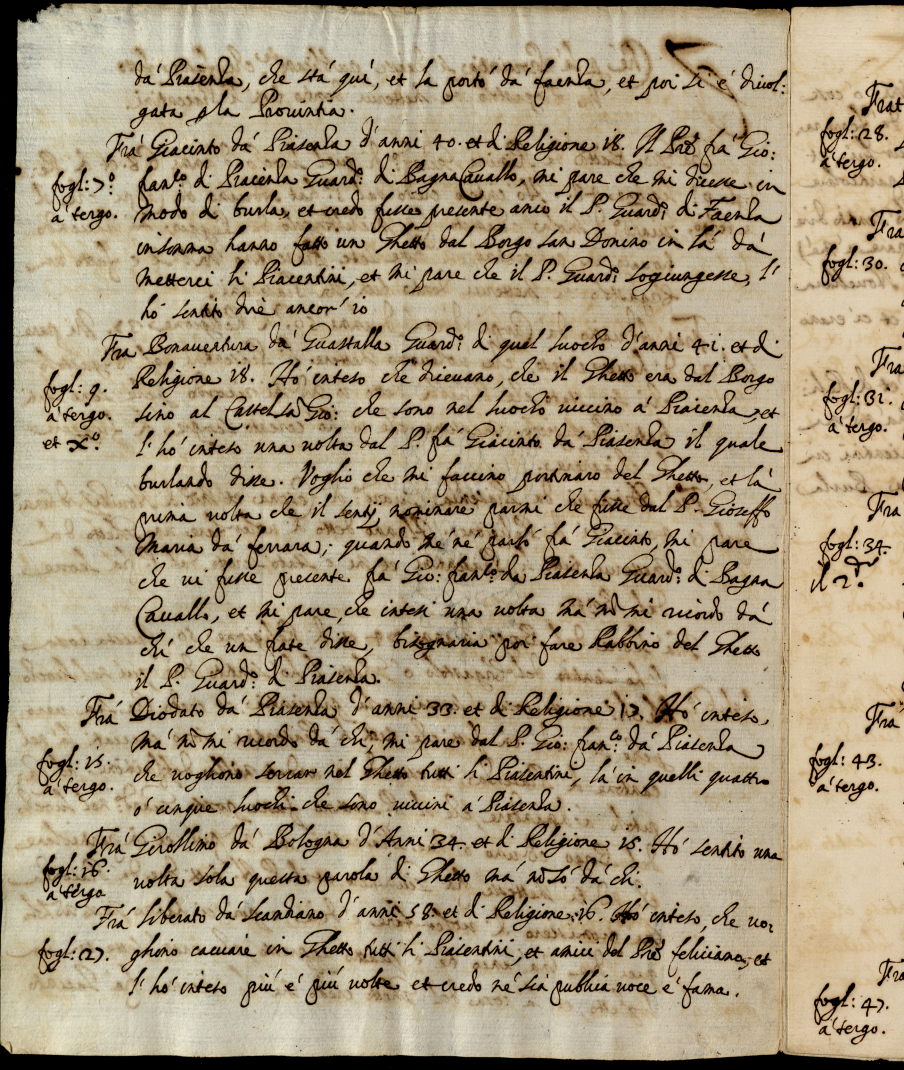 dá Piasenza, che stá quí, et la portó dá faenza, et poi si é divol:
gata p la Provintia.
Frá Giacinto dá Piasenza d'anni 40. et di Religione 18. Il Prê frá Gio:
fogl: 7.º
franco. di Piacenza Guard: di BagnaCavallo, mi pare che mi dicesse in
á tergo.
modo di burla, et credo fusse presente anco il P. Guard: di Faenza
insomma hanno fatto un Ghetto dal Borgo san Donino in lá dá
metterci li Piacentini, et mi pare che il P. Guard: sogiungesse, l'
hó sentito dire ancor' io
Fra Bonaventura dá Guastalla Guard: di quel luocho d'anni 41. et di
fogl: 9.
Religione 18. Hó inteso che dicevano, che il Ghetto era dal Borgo
á tergo.
sino al Castel Sã Gio: che sono nel luocho viccino á Piacenza, et
et Xº.
l' hó inteso una volta dal P. frá Giacinto dá Piasenza il quale
burlando disse. Voglio che mi faccino portinaro del Ghetto, et la
prima volta che il sentij nominare parmi che fusse dal P. Gioseffo
Maria dá ferrara; quando mé né parló frá Giacinto, mi pare
che vi fusse presente frá Gio: franco: da Piasenza Guard: di Bagna
Cavallo, et mi pare, che intesi una volta má nõ mi ricordo dá
chi che un frate disse, bisognaria poi fare Rabbino del Ghetto
il P. Guard: di Piasenza.
Frá Diodato dá Piasenza d'anni 33. et di Religione 17. Hó inteso,
má nõ mi ricordo dá chi, mi pare dal P. Gio: franco: dá Piasenza
fogl: 15.
che vogliono serrar nel Ghetto tutti li Piasentini, lá in quelli quattro
á tergo.
ó cinque luochi che sono viccini á Piasenza.
Frá Girollimo dá Bologna d'Anni 34. et di Religione 15. Hó sentito una
fogl: 16.
volta sola questa parola di Ghetto má nõ só dá chi.
á tergo
Frá liberato dá Scandiano d'anni 58. et di Religione 16. Hó inteso, che vo:
fogl: 27.
gliono cacciare in Ghetto tutti li Piasentini, et amici del Prê feliciano, et
l' hó inteso piú é piú volte et credo né sia publica voce é fama.
Frat
fogl: 28.
á tergo.
Fra
fogl: 30.
Fra
fogl: 31.
á tergo.
Fra
fogl: 34.
il 2º.
Frá
fogl: 43.
á tergo.
Fra
fogl: 47.
á tergo.